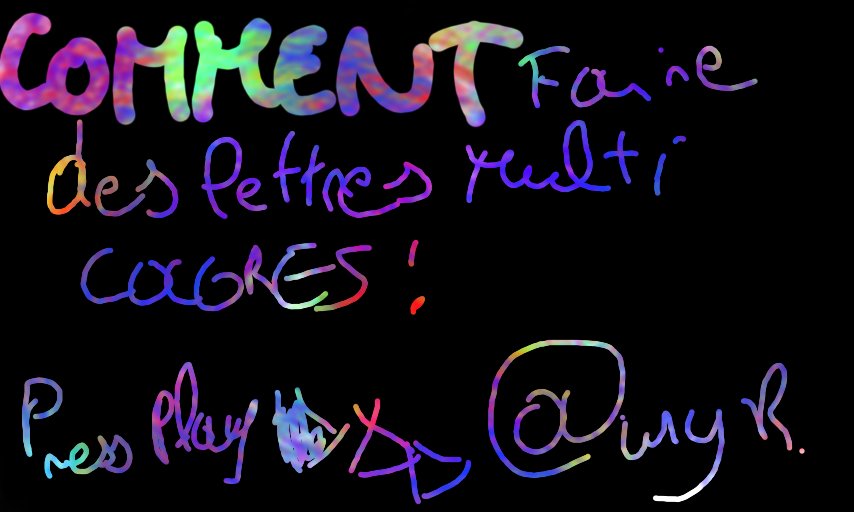 COMMENT Faire
des lettres multi
COCORES!
Press Play